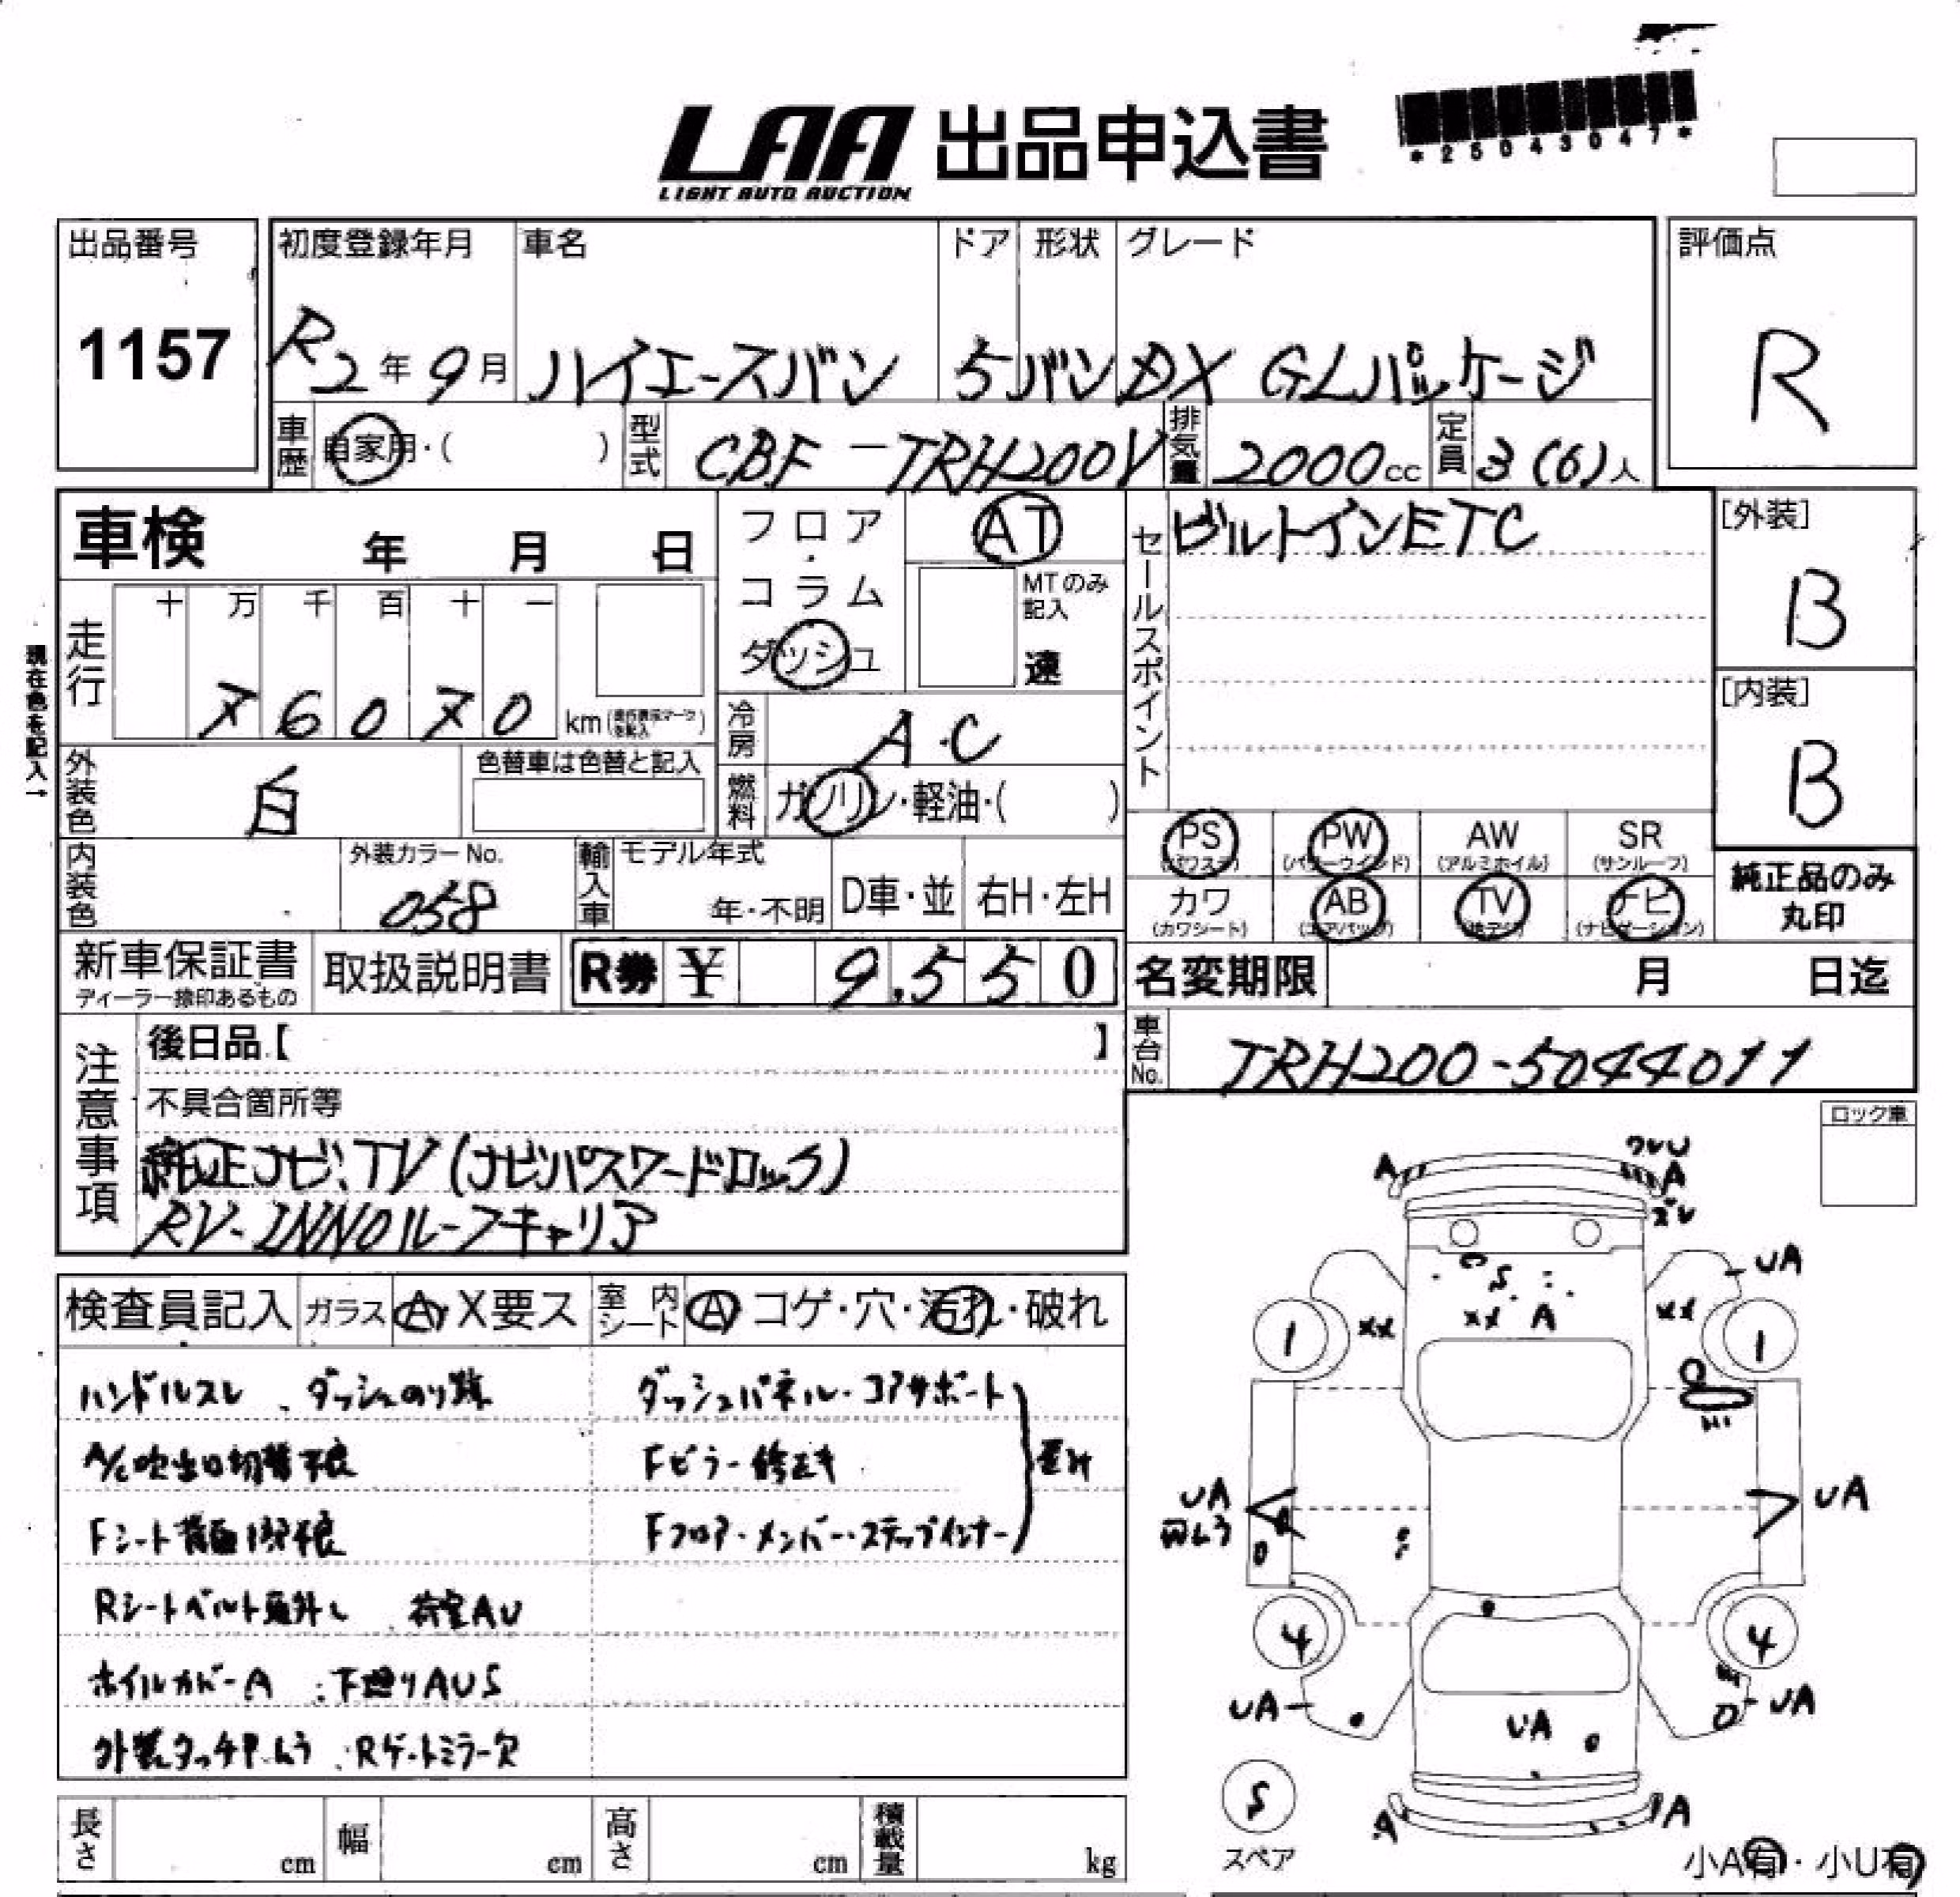 LAA 出品申込書
LIGHT AUTO AUCTION
*25043047*
出品番号
1157
初度登録年月 車名 ドア 形状 グレード
R2年9月 ハイエースバン 5 バン DX GLパッケージ
評価点
R
車歴 自家用・( ) 型式 CBF-TRH200V 排気量 2000cc 定員 3(6)人
車検 年 月 日
フロア・コラム ダッシュ
AT
MTのみ記入
速
現在色を記入→
走行 十 万 千 百 十 一
76070 km
外装色 白 色替車は色替と記入
冷房 A・C
燃料 ガソリン・軽油・( )
内装色 外装カラーNo. 058
輸入車 モデル年式 年・不明 D車・並 右H・左H
新車保証書 ディーラー捺印あるもの
取扱説明書
R券 ¥ 9,550
セールスポイント
ビルトインETC
[外装]
B
[内装]
B
PS (パワステ) PW (パワーウインド) AW (アルミホイル) SR (サンルーフ)
カワ (カワシート) AB (エアバッグ) TV (地デジ) ナビ (ナビゲーション)
純正品のみ丸印
名変期限 月 日迄
車台No. TRH200-5044011
注意事項
後日品【 】
不具合箇所等
純正ナビ、TV(ナビパスワードロック)
RV-INNOルーフキャリア
ロック車
検査員記入 ガラス A・X要ス 室内シート A コゲ・穴・汚れ・破れ
ハンドルスレ、ダッシュのり跡
A/C吹出口切替不良
Rシートベルト 荷室AU
ホイルカバーA 下廻りAUS
Rゲートミラー欠
ダッシュパネル・コアサポート
Fピラー修正キ
Fフロア・メンバー・ステップインナー
A A
UA
XX XX A XX
S
1 1
UA UA
4 4
UA UA UA
A A
S
スペア
長さ cm 幅 cm 高さ cm 積載量 kg
小A有・小U有